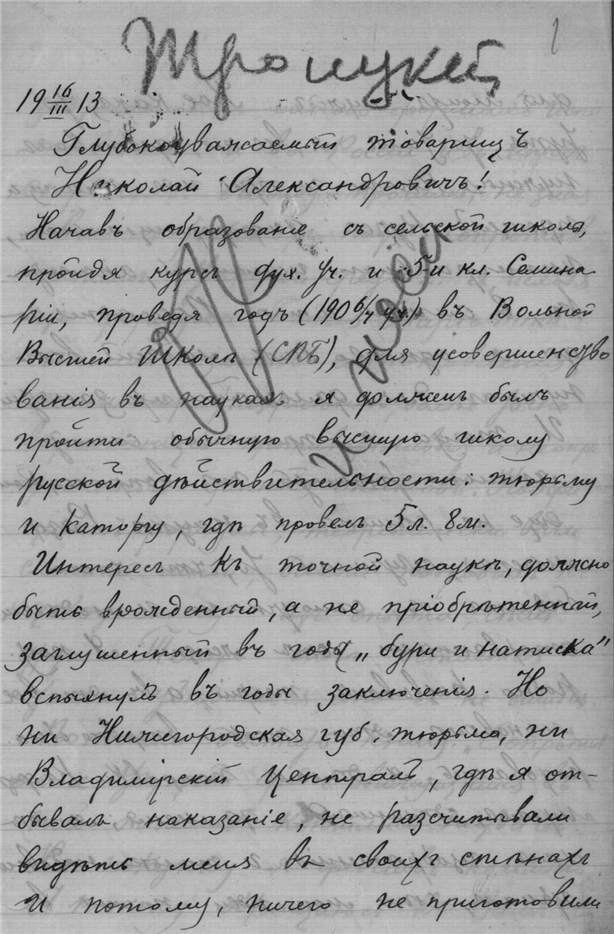 Троицкій
1
19 16/III 13
Глубокоуважаемый товарищъ
Николай Александровичъ!
Начавъ образованіе съ сельской школы,
пройдя курсъ дух. уч. и 5-и кл. Семина
ріи, проведя годъ (1906/7 уч.) въ Вольной
Высшей Школѣ (СПБ), для усовершенство
ванія въ наукахъ я долженъ былъ
пройти обычную высшую школу
русской дѣйствительности: тюрьму
и каторгу, гдѣ провелъ 5 л. 8 м.
Интересъ къ точной наукѣ, должно
быть врожденный, а не пріобрѣтенный,
заглушенный въ годы „бури и натиска"
вспыхнулъ въ годы заключенія. Но
ни Нижегородская губ. тюрьма, ни
Владимірскій Централъ, гдѣ я от-
бывалъ наказаніе, не разсчитывали
видѣть меня въ своихъ стѣнахъ
и потому, ничего не приготовили